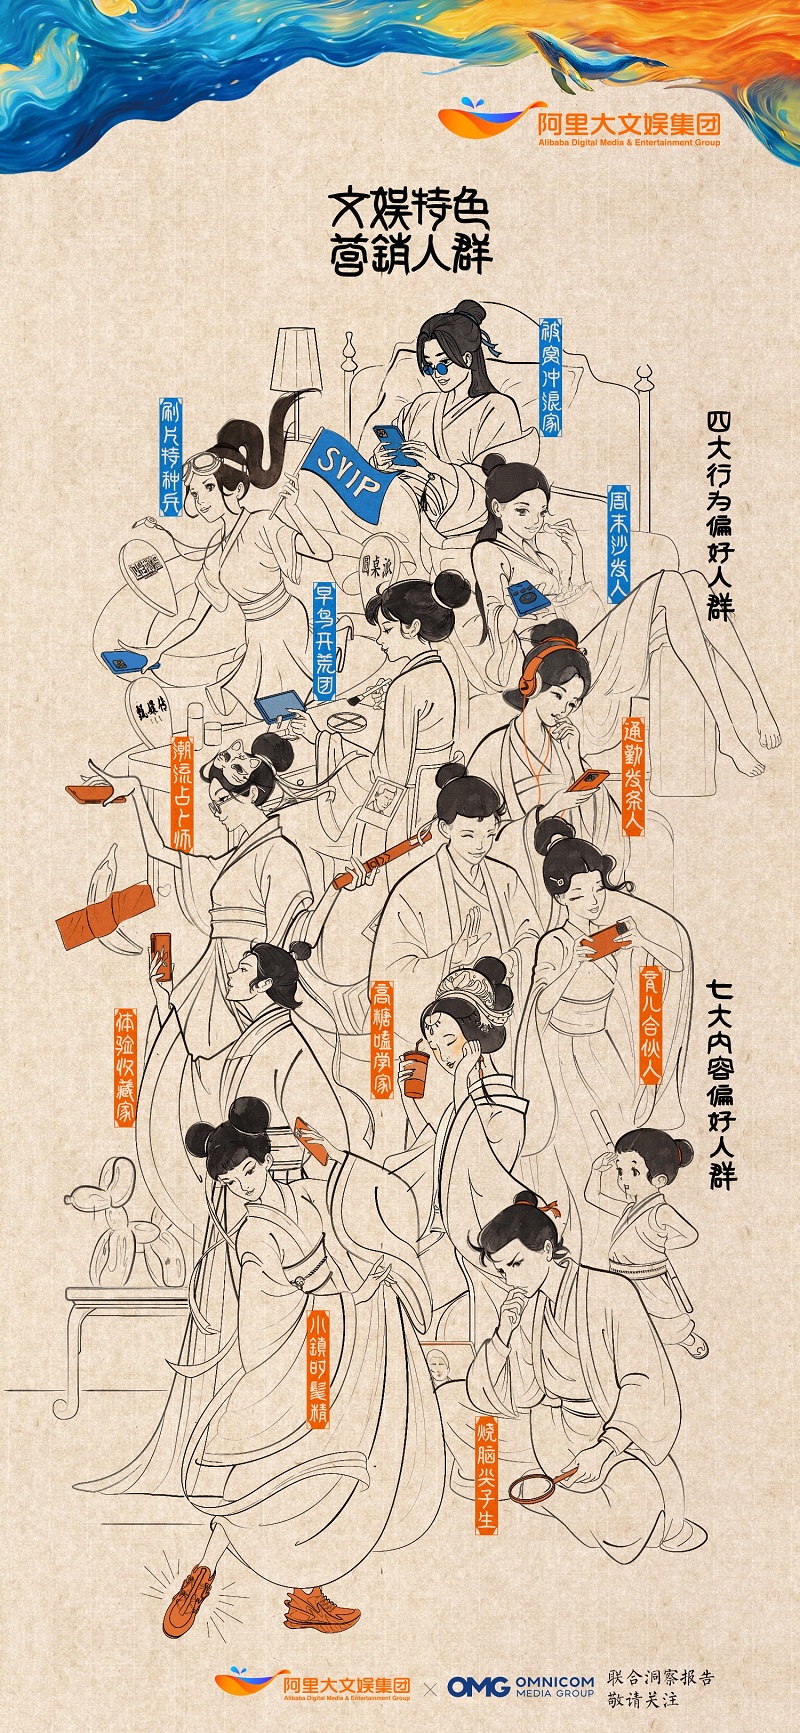 阿里大文娱集团
Alibaba Digital Media & Entertainment Group
文娱特色
营銷人群
被窝冲浪家
刷片特种兵
SVIP
四大行为偏好人群
周末沙发人
圆桌派
早鸟开荒团
甄嬛传
潮流占卜师
通勤发条人
高糖嗑学家
育儿合伙人
体验收藏家
七大内容偏好人群
小鎮时髦精
烧脑尖子生
阿里大文娱集团
Alibaba Digital Media & Entertainment Group
×
OMG OMNICOM
MEDIA GROUP
联合洞察报告
敬请关注